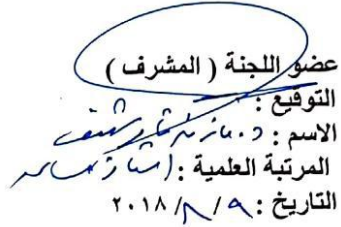 عضو اللجنة ( المشرف )
التوقيع :
الاسم : د. مازن
المرتبة العلمية : استاذ مساعد
التاريخ : ٢٠١٨/٨/٩